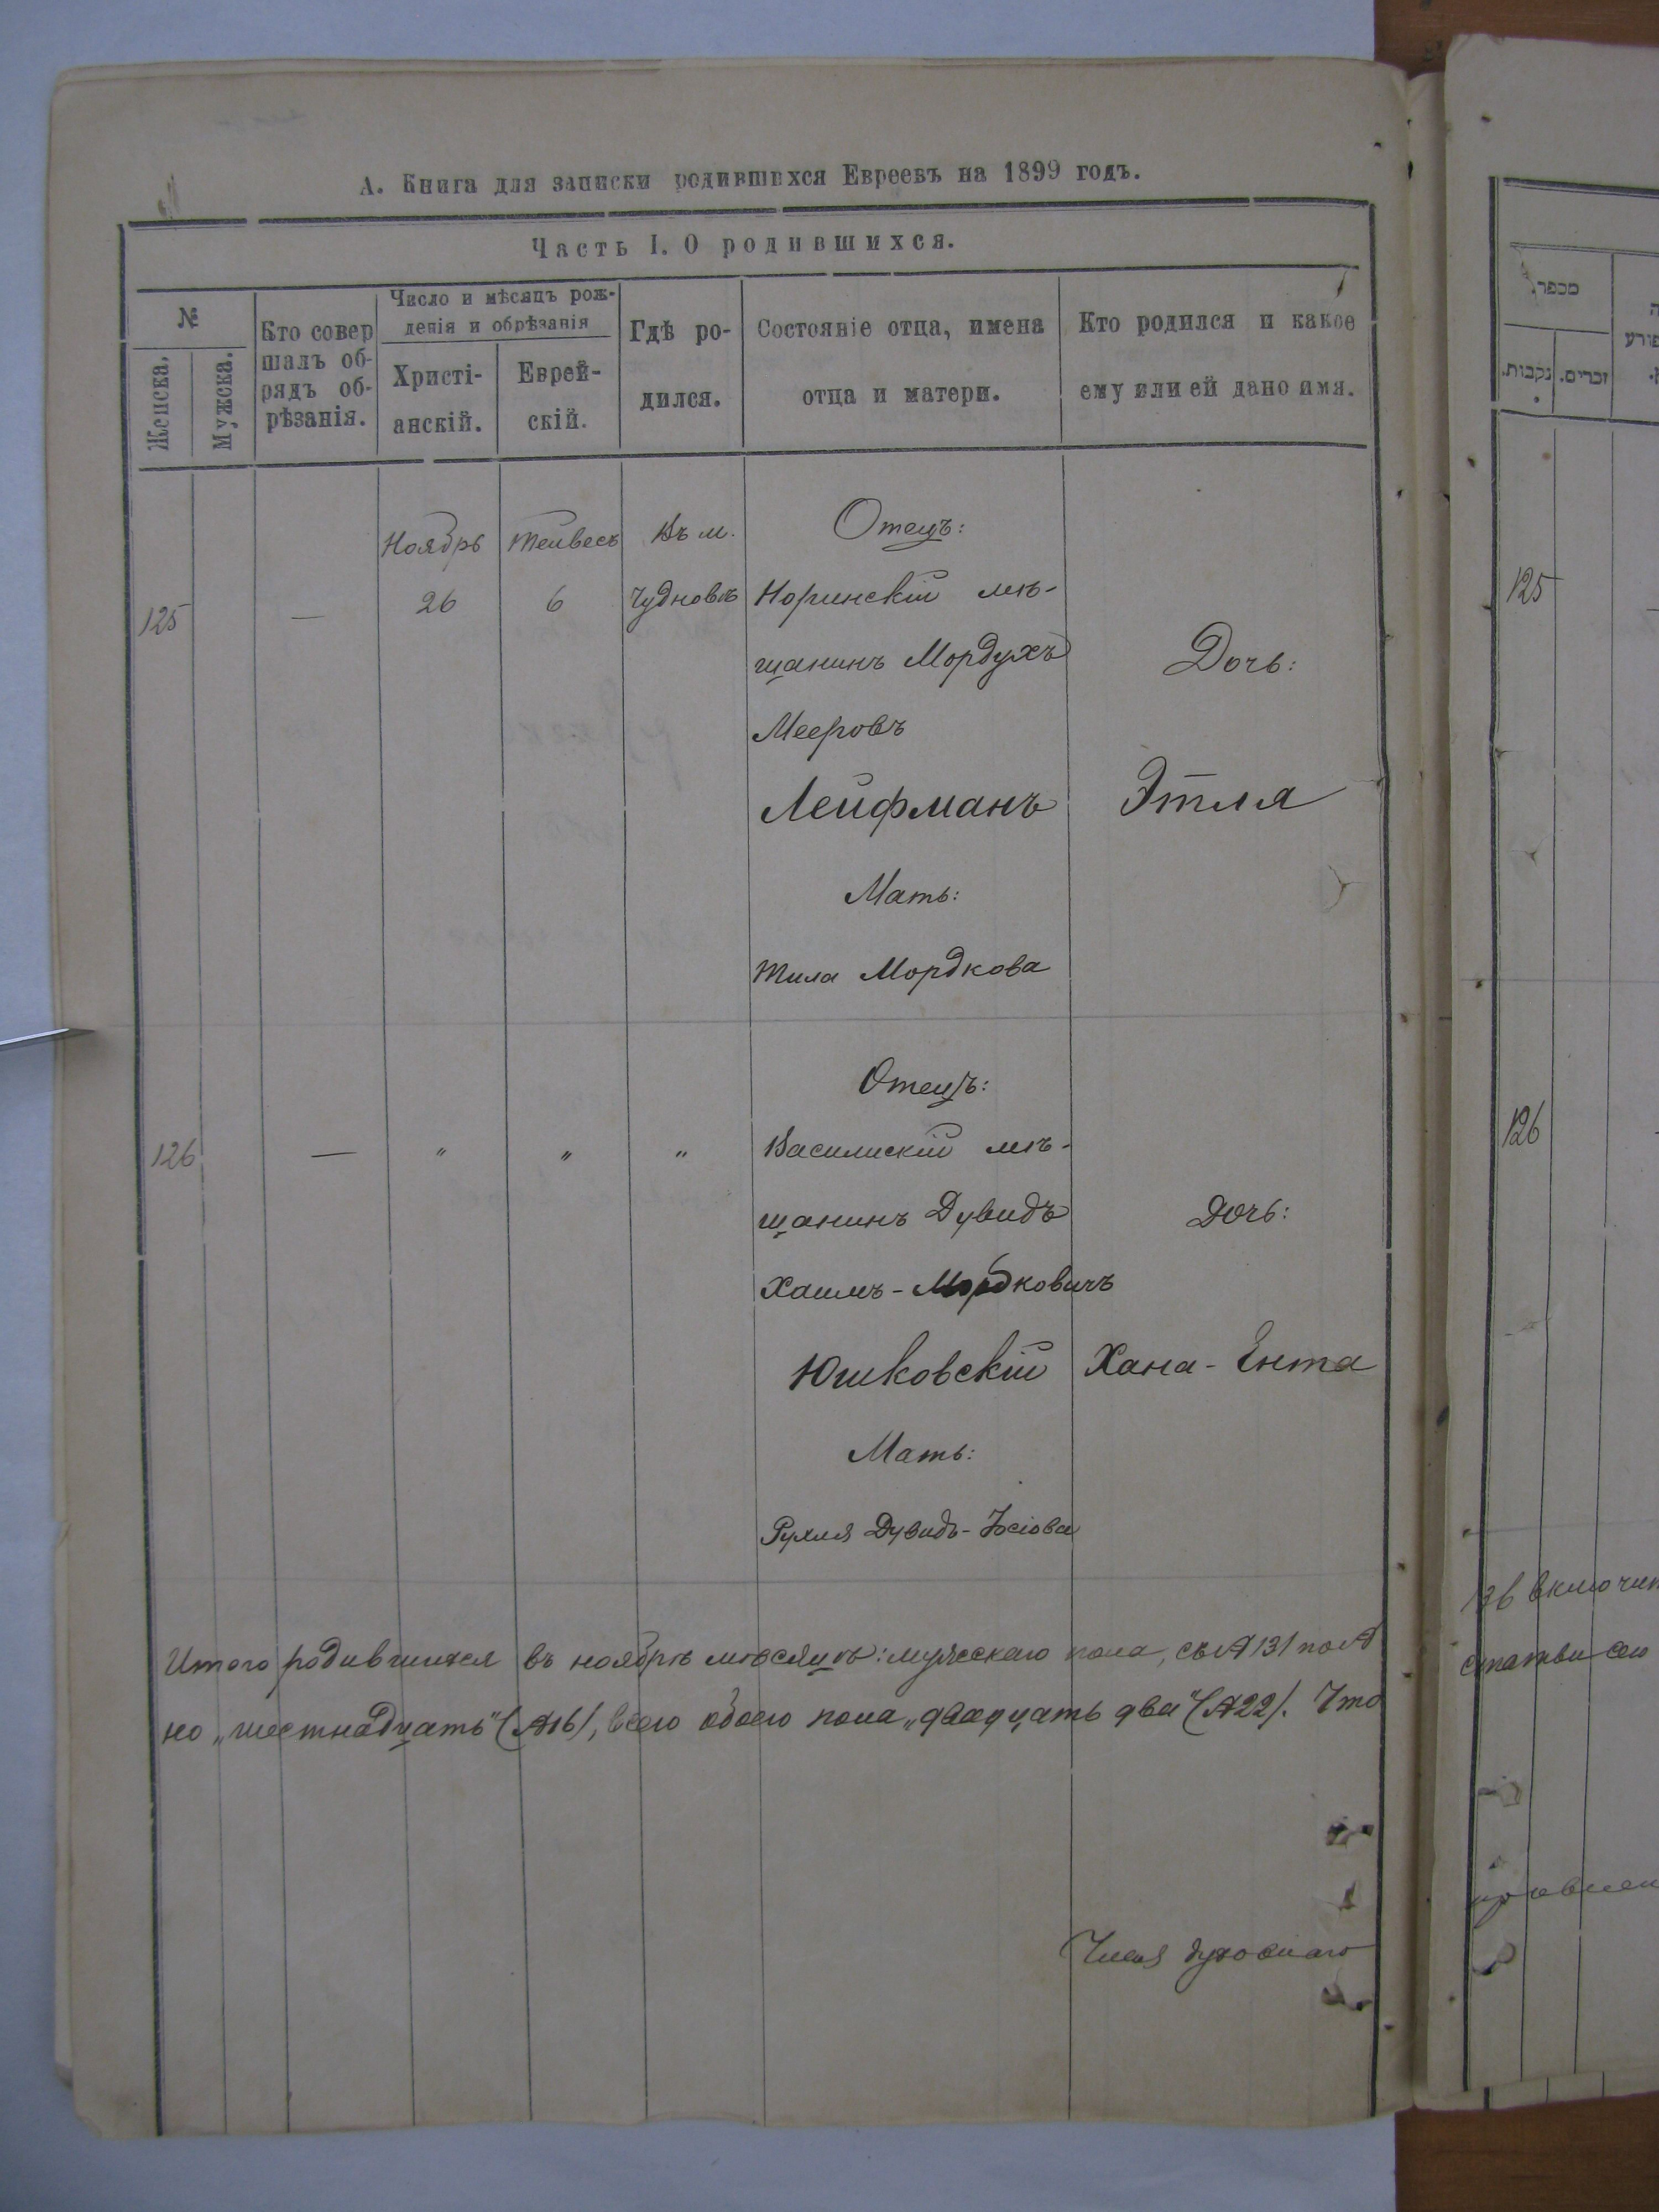 А. Книга для записки родившихся Евреевъ на 1899 годъ.
Часть I. О родившихся.
№
Женска.
Мужска.
Кто совер
шалъ об-
рядъ об-
рѣзанія.
Число и мѣсяцъ рож-
денія и обрѣзанія
Христі-
анскій.
Еврей-
скій.
Гдѣ ро-
дился.
Состояніе отца, имена
отца и матери.
Кто родился и какое
ему или ей дано имя.
125
—
Ноябрь
26
Тейвесъ
6
Въ м.
Чудновѣ
Отецъ:
Норинскій мѣ-
щанинъ Мордухъ
Мееровъ
Лейфманъ
Мать:
Тила Мордкова
Дочь:
Этля
126
—
"
"
"
Отецъ:
Василискій мѣ-
щанинъ Дувидъ
Хаимъ-Мордковичъ
Юшковскій
Мать:
Рухля Дувидъ-Іосіова
Дочь:
Хана-Ента
Итого родившихся въ ноябрѣ мѣсяцѣ: мужескаго пола, съ № 131 по №
но „шестнадцать" (№16), всего обоего пола „двадцать два" (№22). Что
Членъ духовнаго
מספר
נקבות.
זכרים.
125
126
136 включит
статьи сего